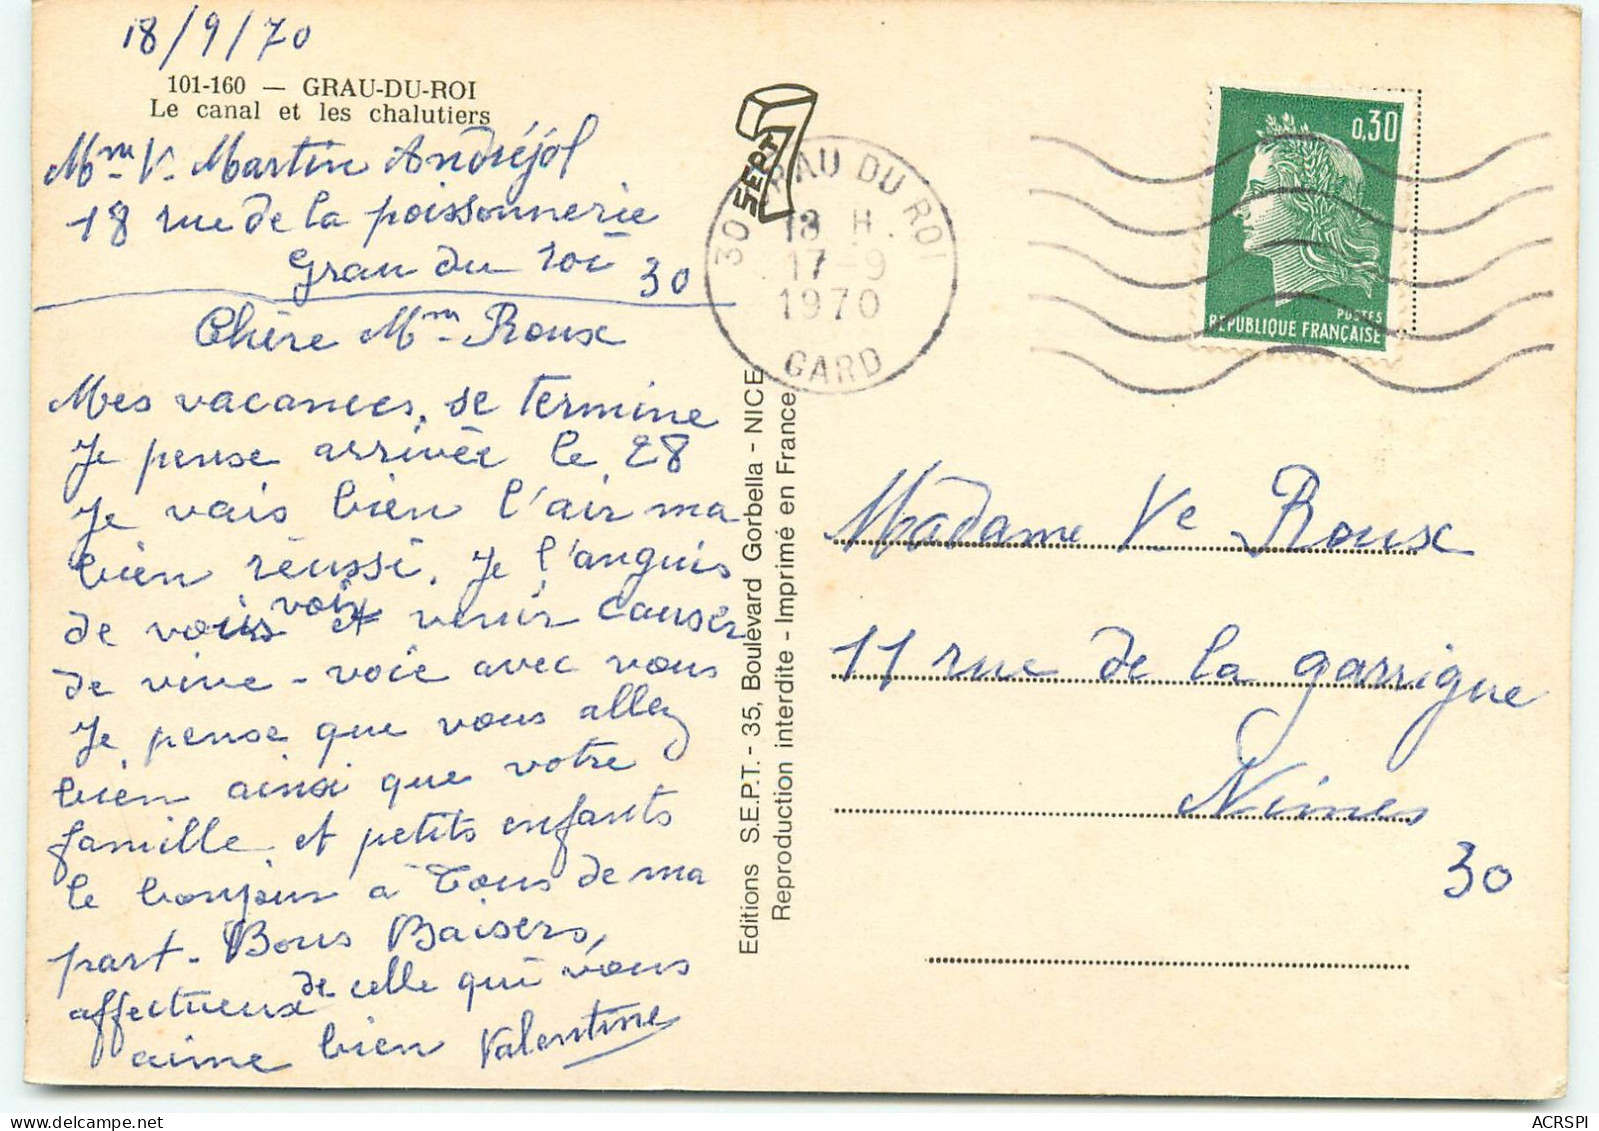 18/9/70
101-160 — GRAU-DU-ROI
Le canal et les chalutiers
Mme V. Martin Andréjol
18 rue de la poissonnerie
Grau du roi 30
Chère Mme Roux
Mes vacances, se termine
Je pense arrivée le 28
Je vais bien l'air ma
bien réussi. Je l'anguis
de vous voir et venir causer
de vive - voie avec vous
Je pense que vous allez
bien ainsi que votre
famille et petits enfants
le bonjour à Tous de ma
part - Bons Baisers,
affectueux de celle qui vous
aime bien Valentine
SEPT 7
Editions S.E.P.T. - 35, Boulevard Gorbella - NICE
Reproduction interdite - Imprimé en France
30 GRAU DU ROI
18 H
17-9
1970
GARD
0,30
POSTES
REPUBLIQUE FRANÇAISE
Madame Ve Roux
11 rue de la garrigue
Nimes
30
ACRSPI